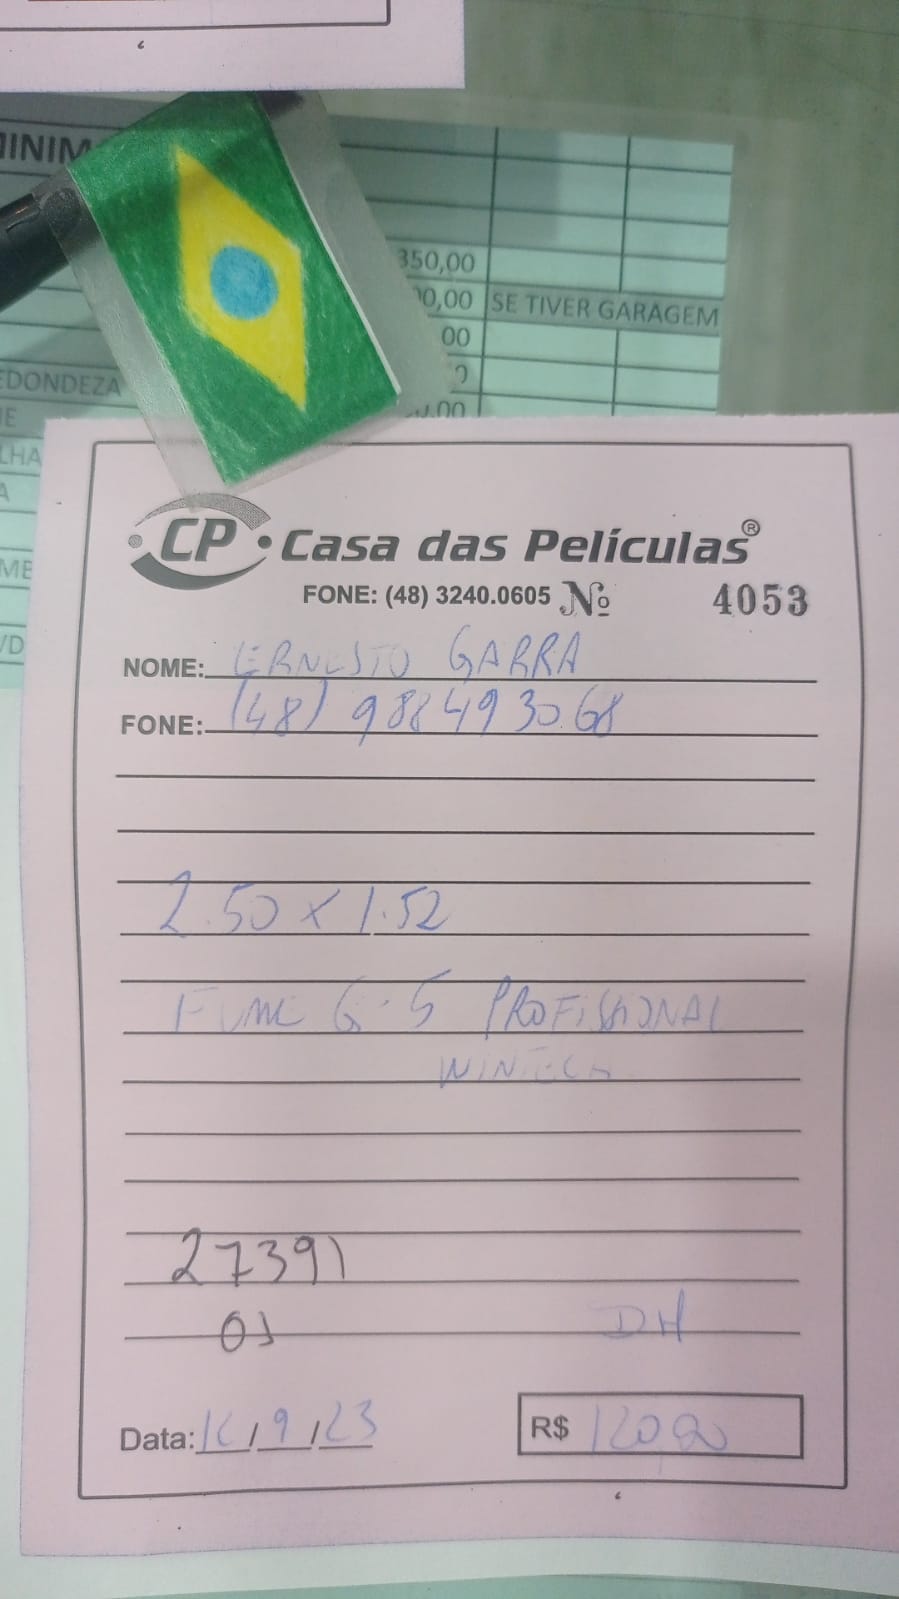 350,00
00,00 SE TIVER GARAGEM
00
EDONDEZA
LHA
A
ME
CP Casa das Películas®
FONE: (48) 3240.0605 Nº 4053
NOME: ERNESTO GARRA
FONE: (48) 988493068
2.50 x 1.52
FUME G-5 PROFISSIONAL
WINTECH
27391
DH
Data: / 9 / 23 R$ 120,00